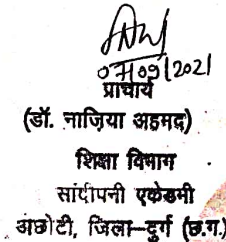 07/09/2021
प्राचार्य
(डॉ. नाज़िया अहमद)
शिक्षा विभाग
सांदीपनी एकेडमी
अछोटी, जिला–दुर्ग (छ.ग.)